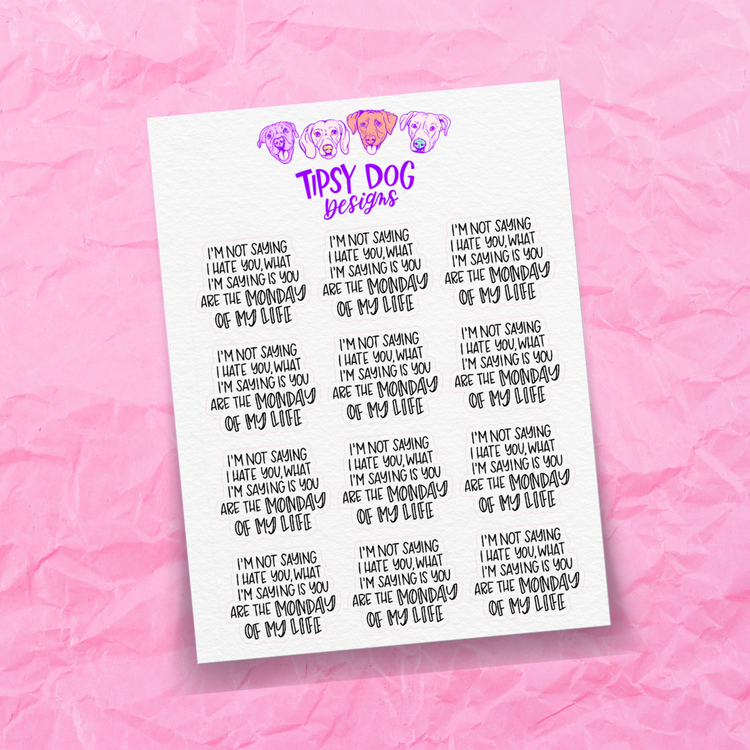 TIPSY DOG
Designs
I'M NOT SAYING
I HATE YOU, WHAT
I'M SAYING IS YOU
ARE THE MONDAY
OF MY LIFE
I'M NOT SAYING
I HATE YOU, WHAT
I'M SAYING IS YOU
ARE THE MONDAY
OF MY LIFE
I'M NOT SAYING
I HATE YOU, WHAT
I'M SAYING IS YOU
ARE THE MONDAY
OF MY LIFE
I'M NOT SAYING
I HATE YOU, WHAT
I'M SAYING IS YOU
ARE THE MONDAY
OF MY LIFE
I'M NOT SAYING
I HATE YOU, WHAT
I'M SAYING IS YOU
ARE THE MONDAY
OF MY LIFE
I'M NOT SAYING
I HATE YOU, WHAT
I'M SAYING IS YOU
ARE THE MONDAY
OF MY LIFE
I'M NOT SAYING
I HATE YOU, WHAT
I'M SAYING IS YOU
ARE THE MONDAY
OF MY LIFE
I'M NOT SAYING
I HATE YOU, WHAT
I'M SAYING IS YOU
ARE THE MONDAY
OF MY LIFE
I'M NOT SAYING
I HATE YOU, WHAT
I'M SAYING IS YOU
ARE THE MONDAY
OF MY LIFE
I'M NOT SAYING
I HATE YOU, WHAT
I'M SAYING IS YOU
ARE THE MONDAY
OF MY LIFE
I'M NOT SAYING
I HATE YOU, WHAT
I'M SAYING IS YOU
ARE THE MONDAY
OF MY LIFE
I'M NOT SAYING
I HATE YOU, WHAT
I'M SAYING IS YOU
ARE THE MONDAY
OF MY LIFE